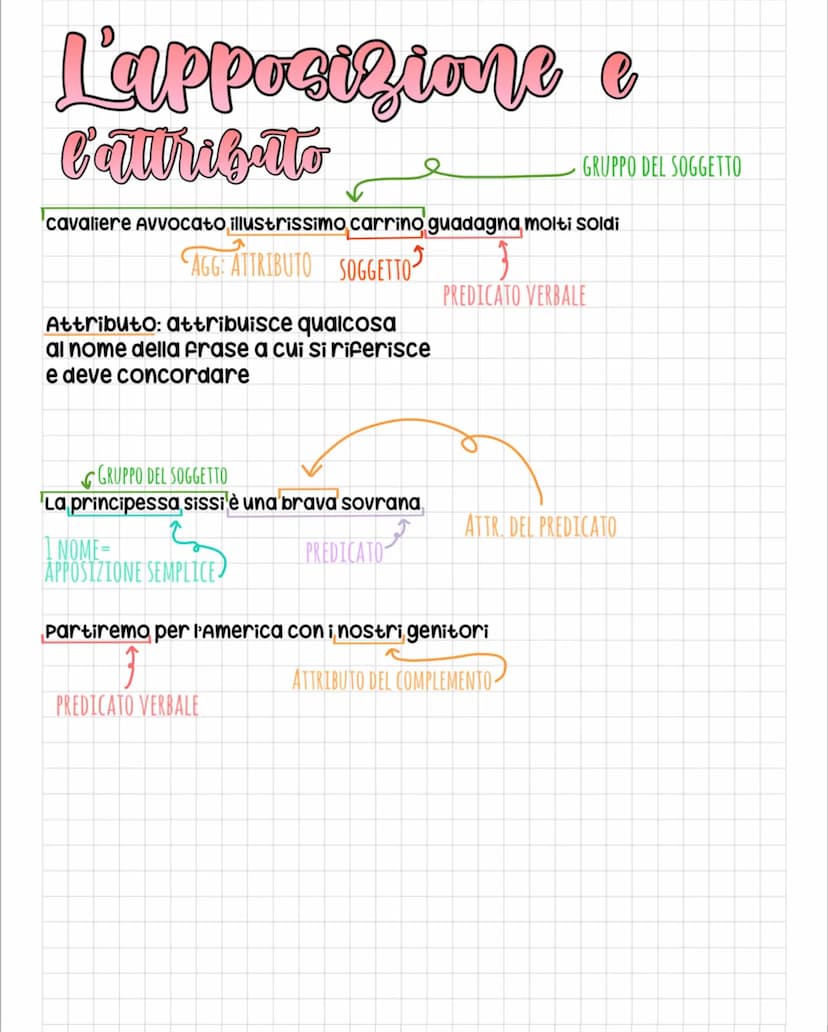 L'apposizione e
l'attributo
GRUPPO DEL SOGGETTO
cavaliere Avvocato illustrissimo carrino guadagna molti soldi
AGG: ATTRIBUTO
SOGGETTO
PREDICATO VERBALE
Attributo: attribuisce qualcosa
al nome della frase a cui si riferisce
e deve concordare
GRUPPO DEL SOGGETTO
La principessa sissi è una brava sovrana
ATTR. DEL PREDICATO
1 NOME=
APPOSIZIONE SEMPLICE
PREDICATO
Partiremo per l'America con i nostri genitori
ATTRIBUTO DEL COMPLEMENTO
PREDICATO VERBALE